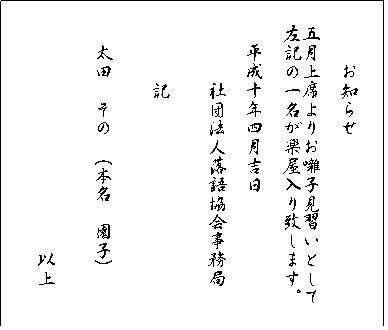 お知らせ
五月上席よりお囃子見習いとして
左記の一名が楽屋入り致します。
平成十年四月吉日
社団法人落語協会事務局
記
太田 その (本名 園子)
以上